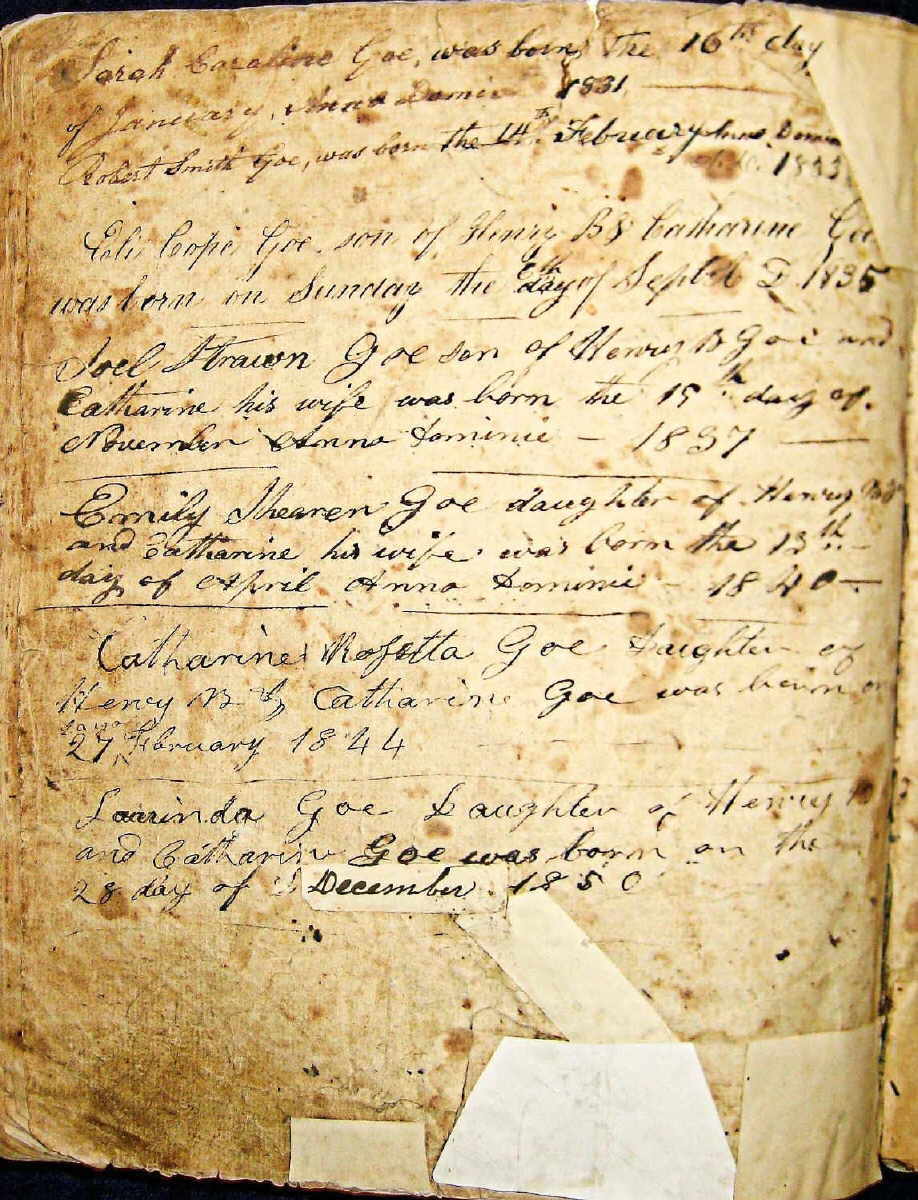 Sarah Caroline Goe, was born the 16th day
of January, Anno Domini 1831.
Robert Smith Goe, was born the 14th February Anno Domini
1833
Eli Cope Goe son of Henry B & Catharine Goe
was born on Sunday the 6th day of Sept D 1835
Joel Strawn Goe son of Henry B Goe and
Catharine his wife was born the 15th day of
November Anno Dominie – 1837 —
Emily Shearen Goe daughter of Henry
and Catharine his wife was born the 13th
day of April Anno Dominie – 1840 —
Catharine Rosetta Goe Daughter of
Henry B & Catharine Goe was born on
27 February 1844
Laurinda Goe Daughter of Henry B
and Catharine Goe was born on the
28 day of December 1850